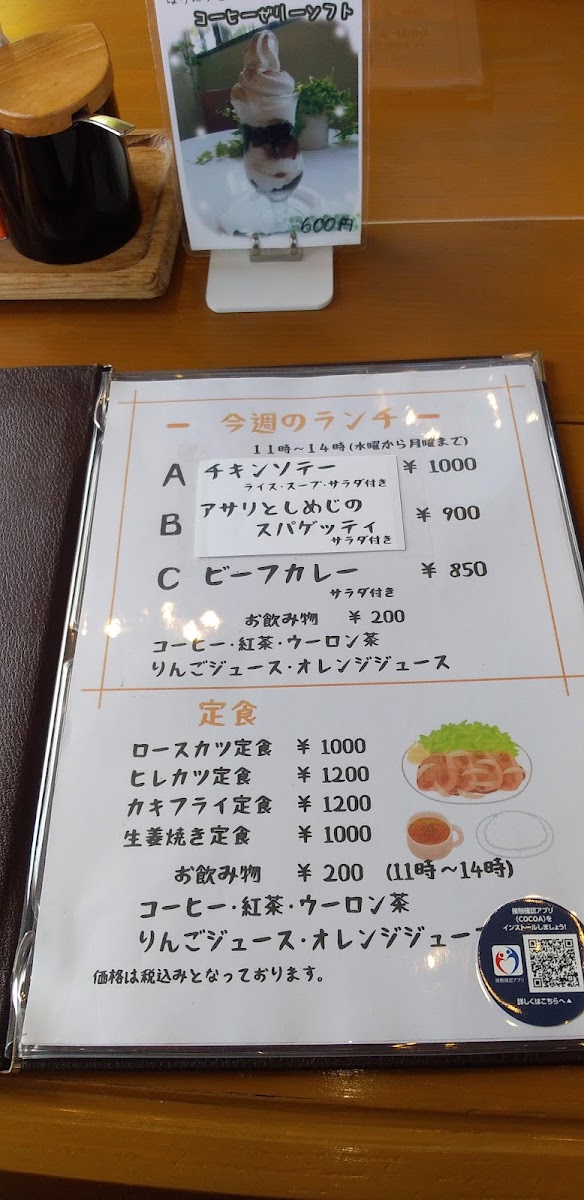 コーヒーゼリーソフト
600円
ー 今週のランチ ー
11時～14時(水曜から月曜まで)
A チキンソテー ¥ 1000
ライス・スープ・サラダ付き
B アサリとしめじの
スパゲッティ ¥ 900
サラダ付き
C ビーフカレー ¥ 850
サラダ付き
お飲み物 ¥ 200
コーヒー・紅茶・ウーロン茶
りんごジュース・オレンジジュース
定食
ロースカツ定食 ¥ 1000
ヒレカツ定食 ¥ 1200
カキフライ定食 ¥ 1200
生姜焼き定食 ¥ 1000
お飲み物 ¥ 200 (11時～14時)
コーヒー・紅茶・ウーロン茶
りんごジュース・オレンジジュー
価格は税込みとなっております。
接触確認アプリ
(COCOA)を
インストールしましょう!
接触確認アプリ
詳しくはこちらへ▲